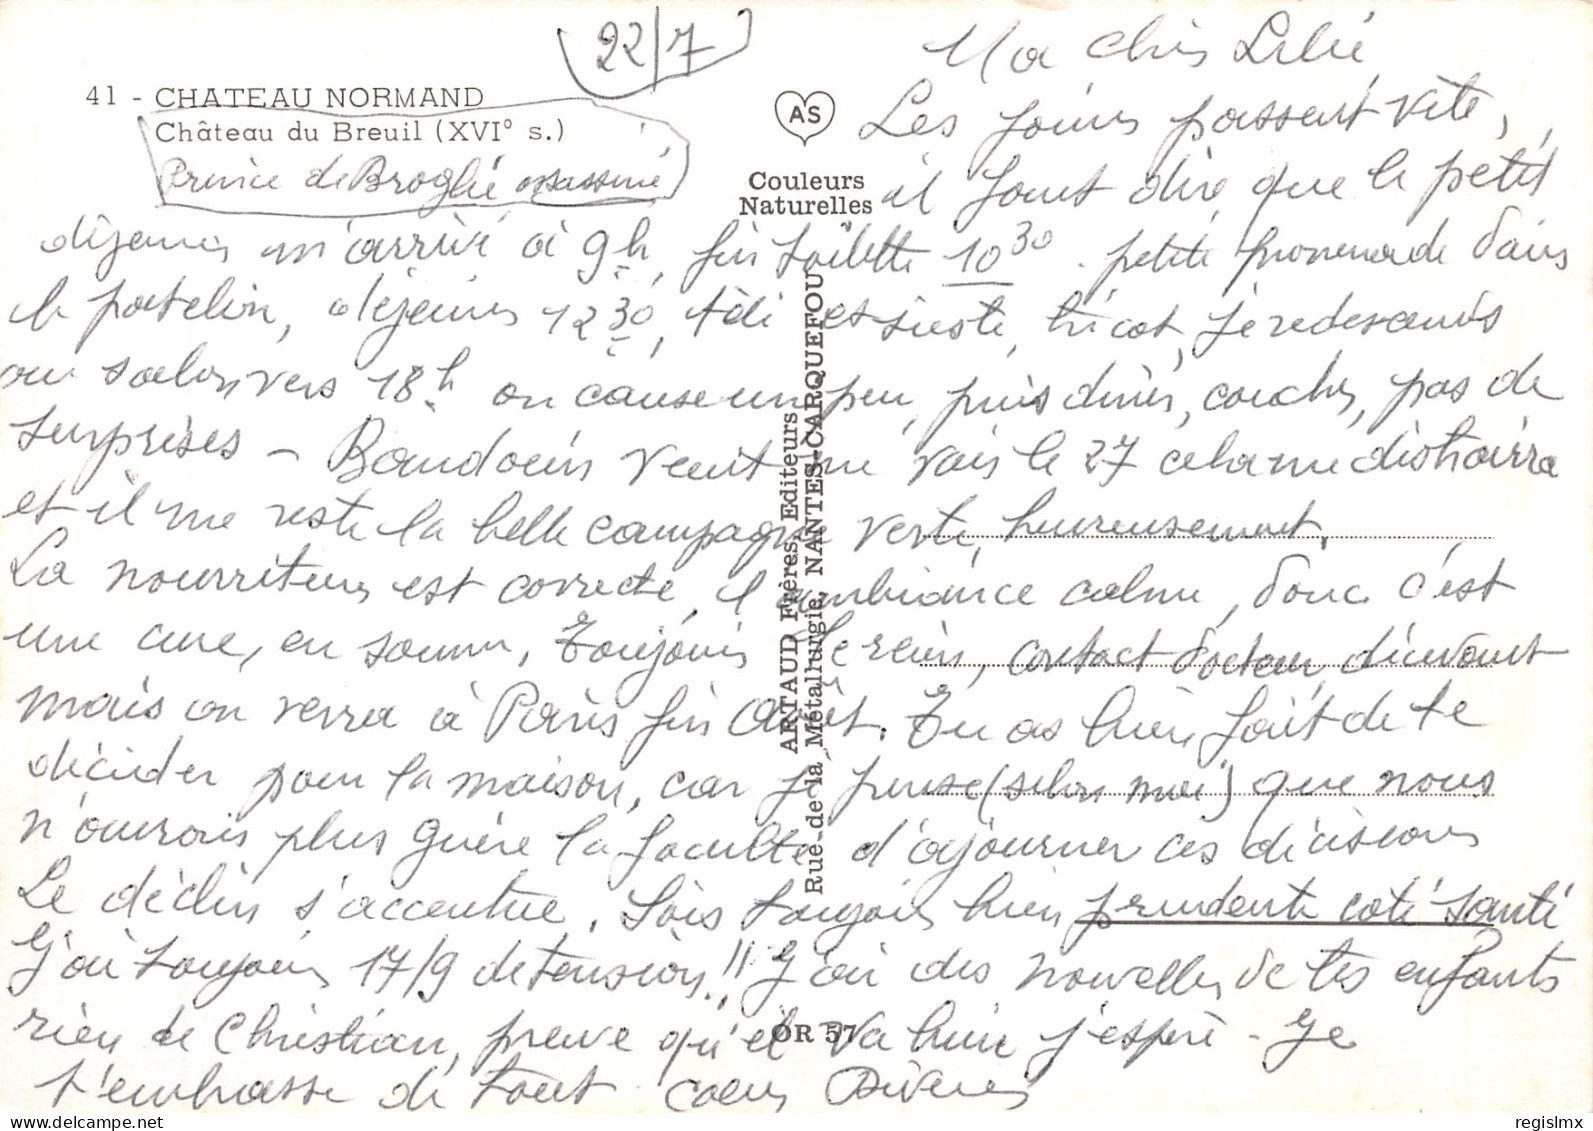 22/7
41 - CHATEAU NORMAND
Château du Breuil (XVIº s.)
Prince de Broglie assassiné
AS
Couleurs
Naturelles
ARTAUD Frères, Editeurs
Rue de la Métallurgie, NANTES-CARQUEFOU
OR 57
Ma chère Lilie
Les jours passent vite,
il faut dire que le petit
déjeuner m'arrive à 9h, fin toilette 10 30. petite promenade dans
le patelin, déjeuner 12 30, télé et sieste, tricot, je redescends
au salon vers 18h on cause un peu, puis dîner, coucher, pas de
surprises - Baudoin vient me voir le 27 cela me distraira
et il me reste la belle campagne verte, heureusement.
La nourriture est correcte, l'ambiance calme, donc c'est
une cure, en somme. Toujours le rein, contact docteur, décevant
mais on verra à Paris fin Août. Tu as bien fait de te
décider pour la maison, car je pense (selon moi) que nous
n'aurons plus guère la faculté d'ajourner ces décisions
Le déclin s'accentue. Sois toujours bien prudente coté santé
J'ai toujours 17/9 de tension!! J'ai des nouvelles de tes enfants
rien de Christian, preuve qu'il va bien j'espère - Je
t'embrasse de tout coeur
regislmx